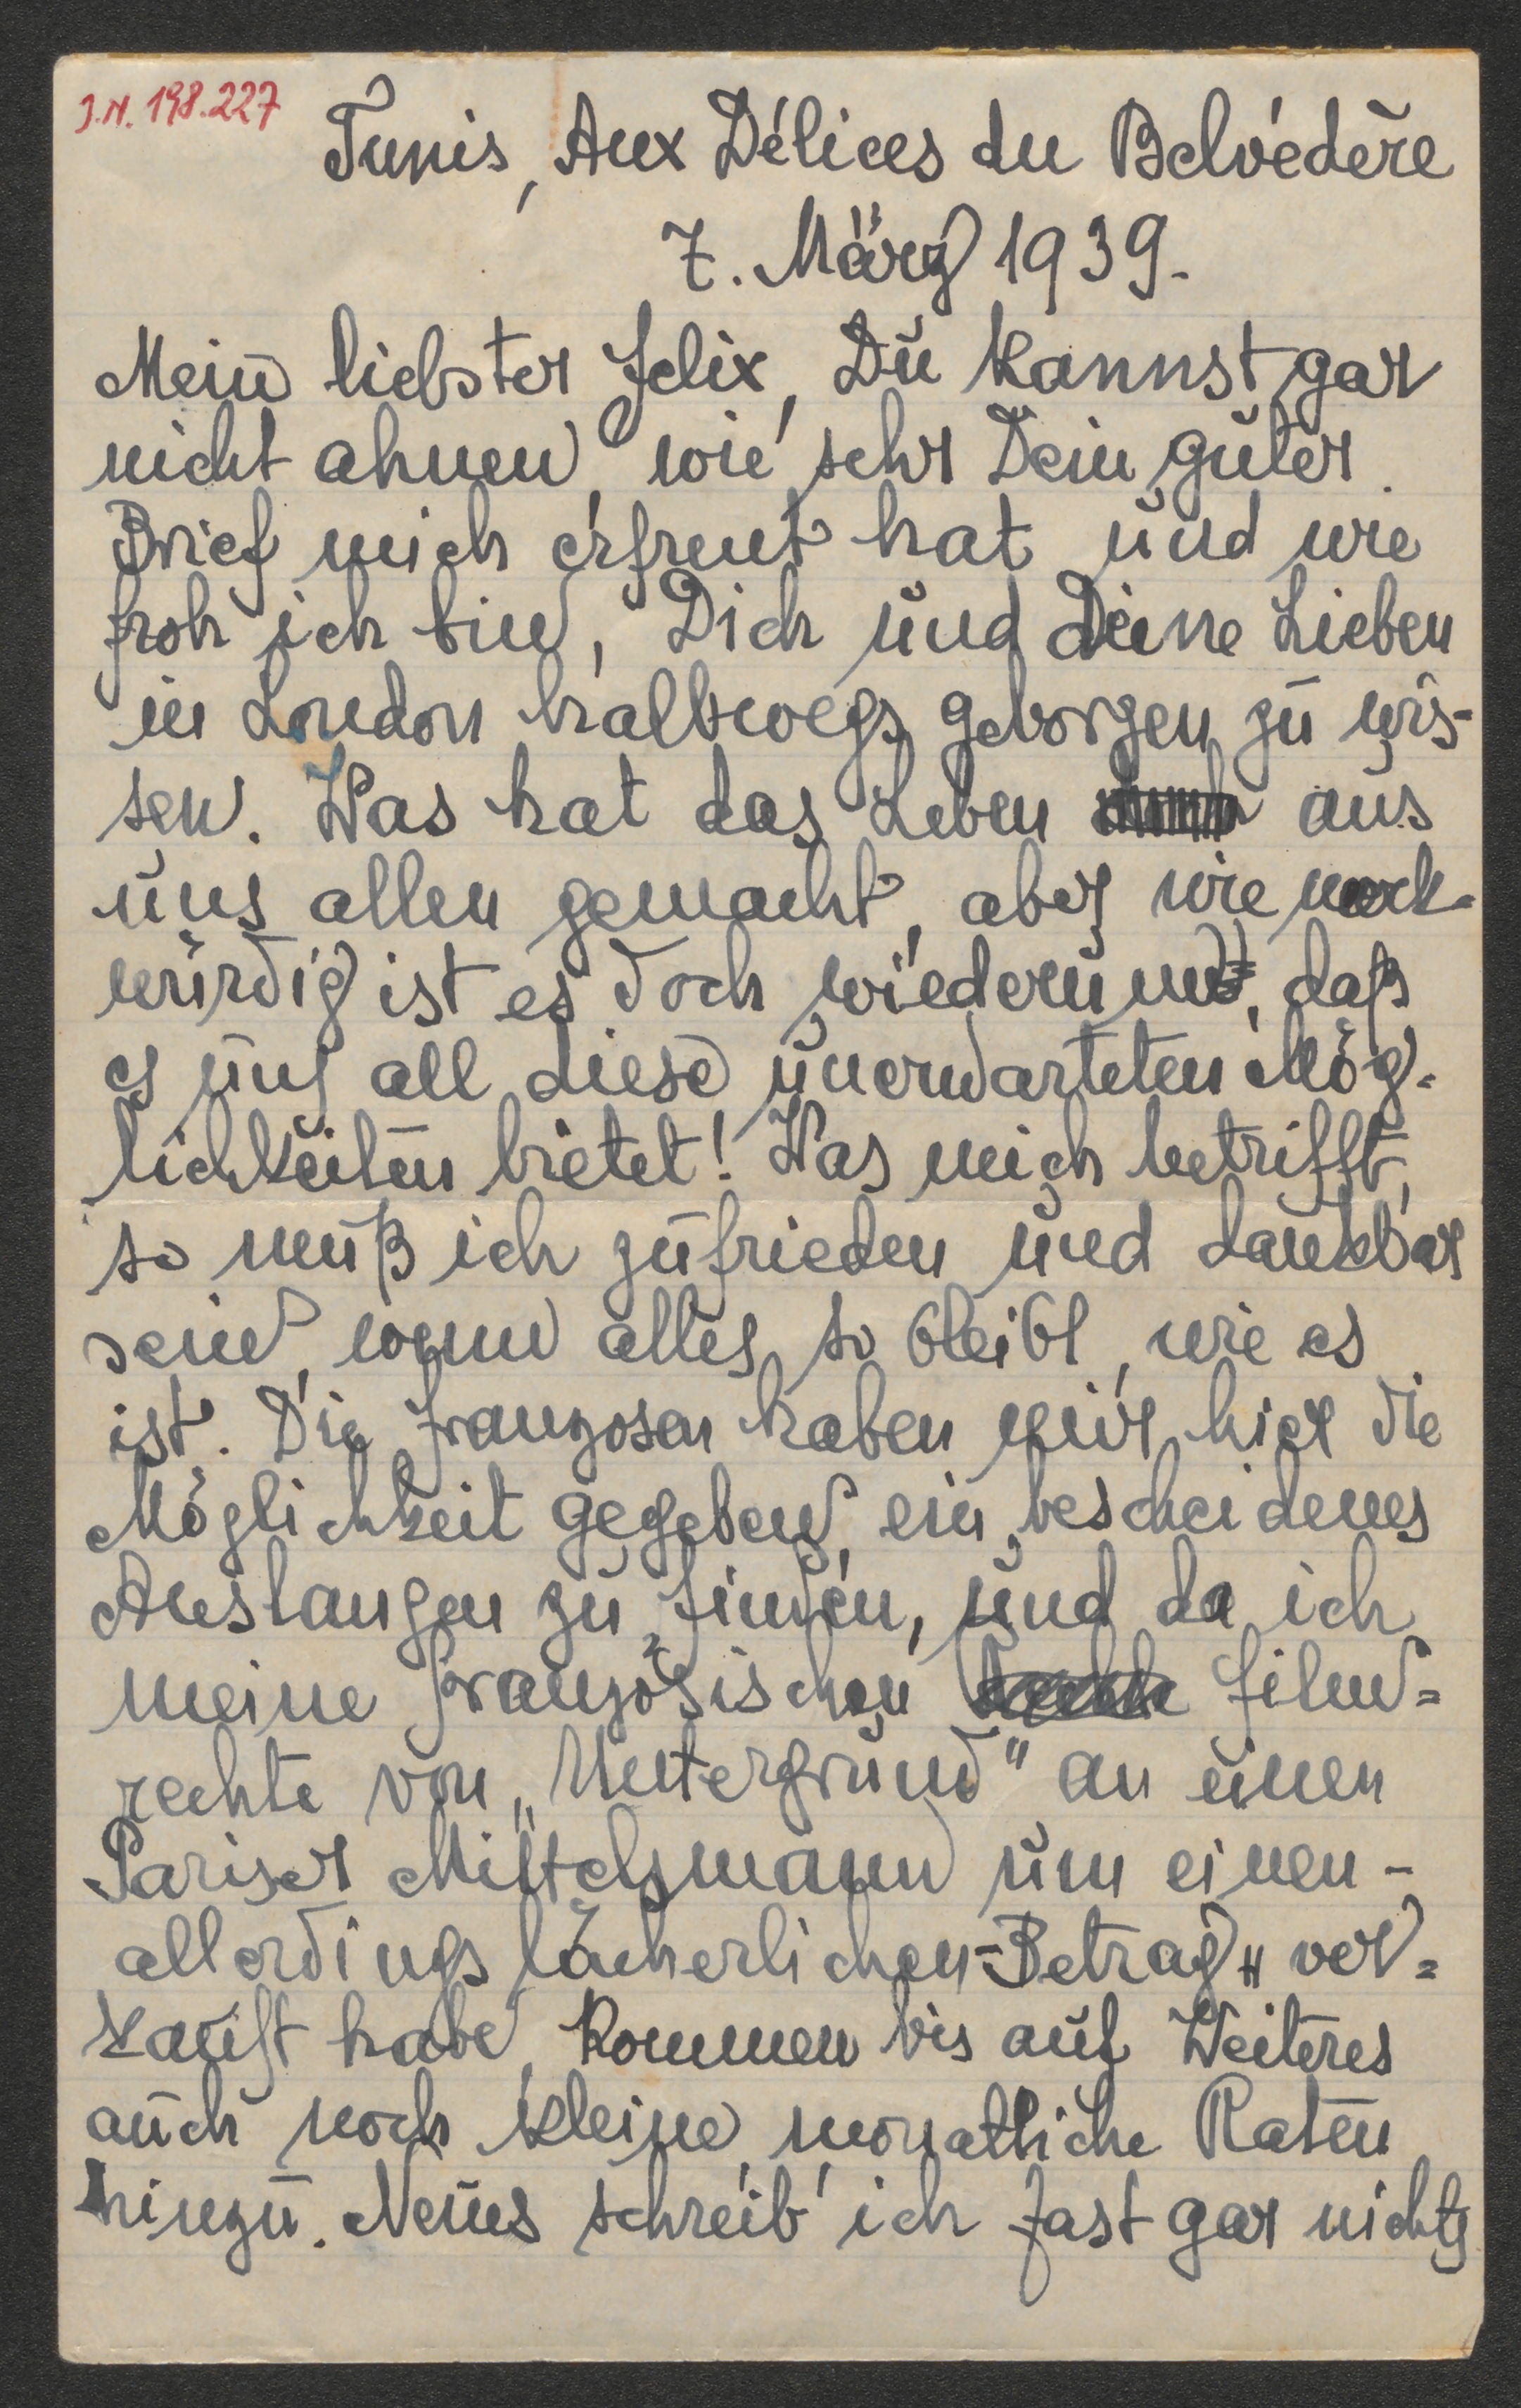 J.N. 198.227
Tunis, Aux Délices du Belvédère
7. März 1939.
Mein liebster Felix, Du kannst gar
nicht ahnen, wie sehr Dein guter
Brief mich erfreut hat und wie
froh ich bin, Dich und Deine Lieben
in London halbwegs geborgen zu wis-
sen. Was hat das Leben aus
uns allen gemacht, aber wie merk-
würdig ist es doch wiederum, daß
es uns all diese unerwarteten Mög-
lichkeiten bietet! Was mich betrifft,
so muß ich zufrieden und dankbar
sein, wenn alles so bleibt, wie es
ist. Die Franzosen haben mir hier die
Möglichkeit gegeben, ein bescheidenes
Auslangen zu finden, und da ich
meine französischen Film=
rechte von „Untergrund" an einen
Pariser Mittelsmann um einen -
allerdings lächerlichen - Betrag ver=
kauft habe, kommen bis auf Weiteres
auch noch kleine monatliche Raten
hinzu. Neues schreib' ich fast gar nichts